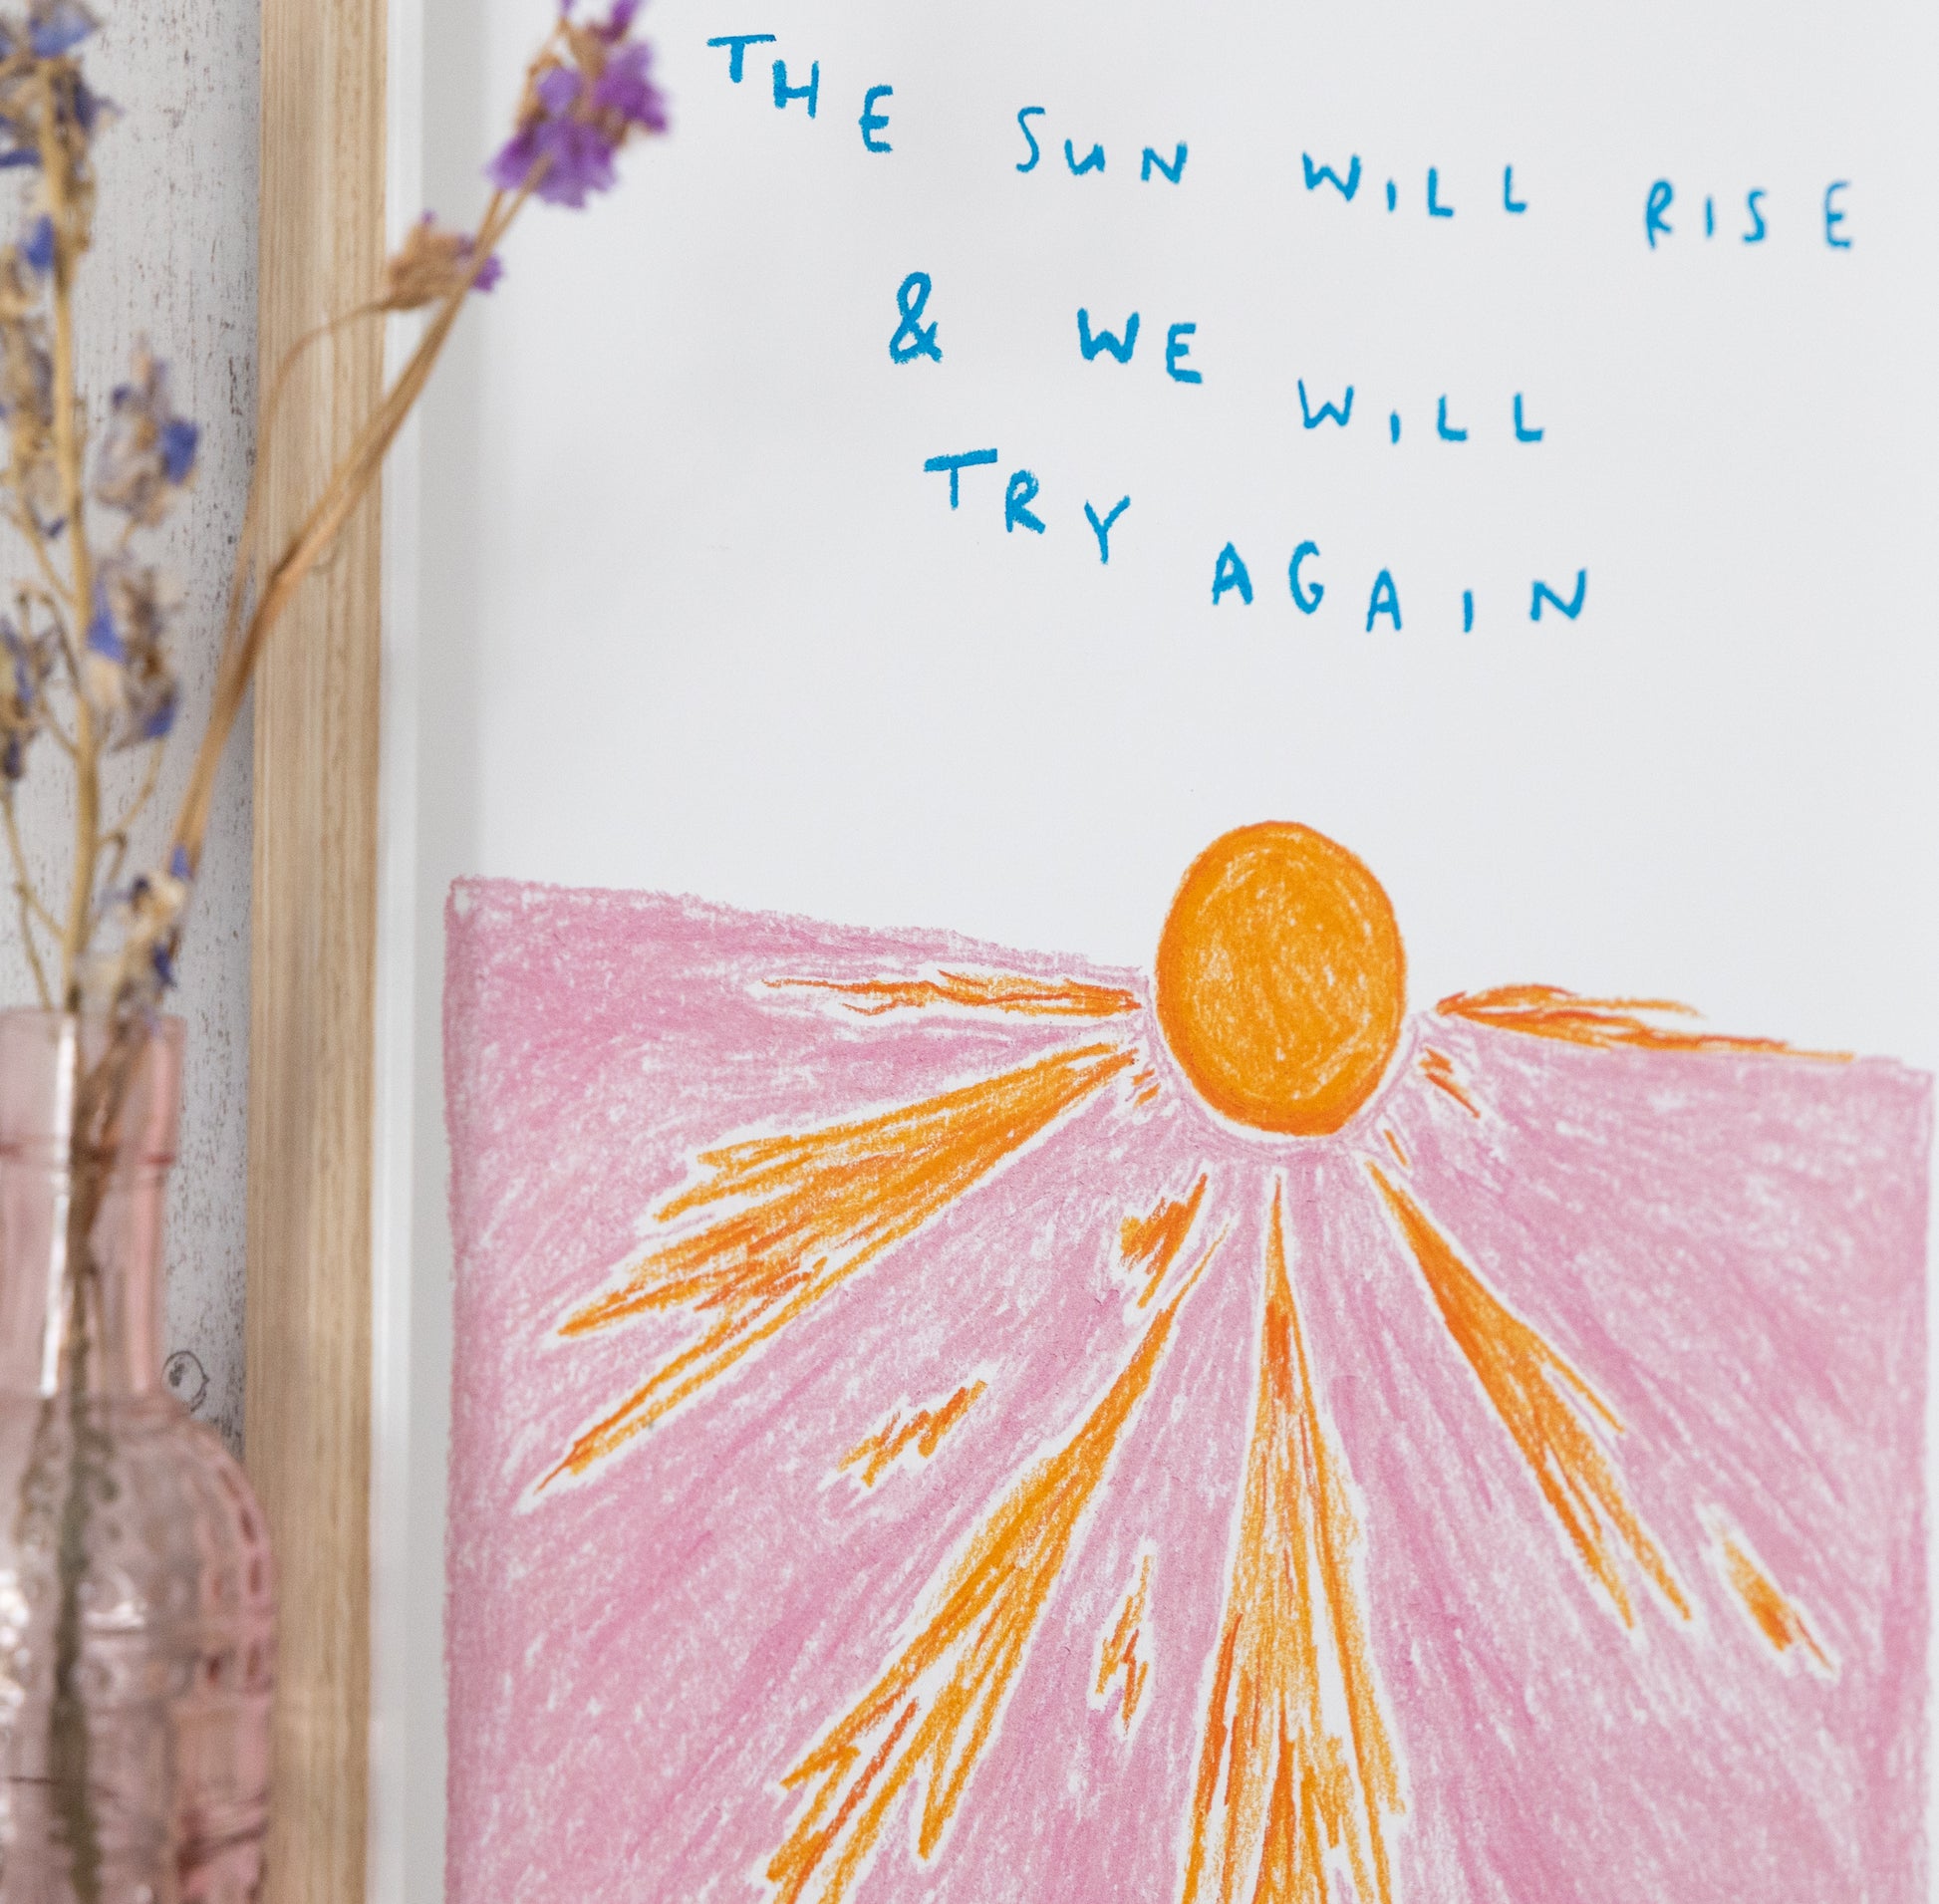 THE SUN WILL RISE
& WE WILL
TRY AGAIN